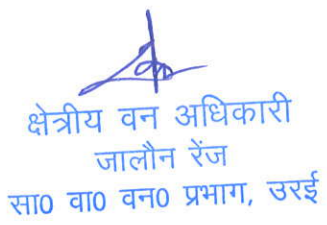 क्षेत्रीय वन अधिकारी
जालौन रेंज
सा0 वा0 वन0 प्रभाग, उरई